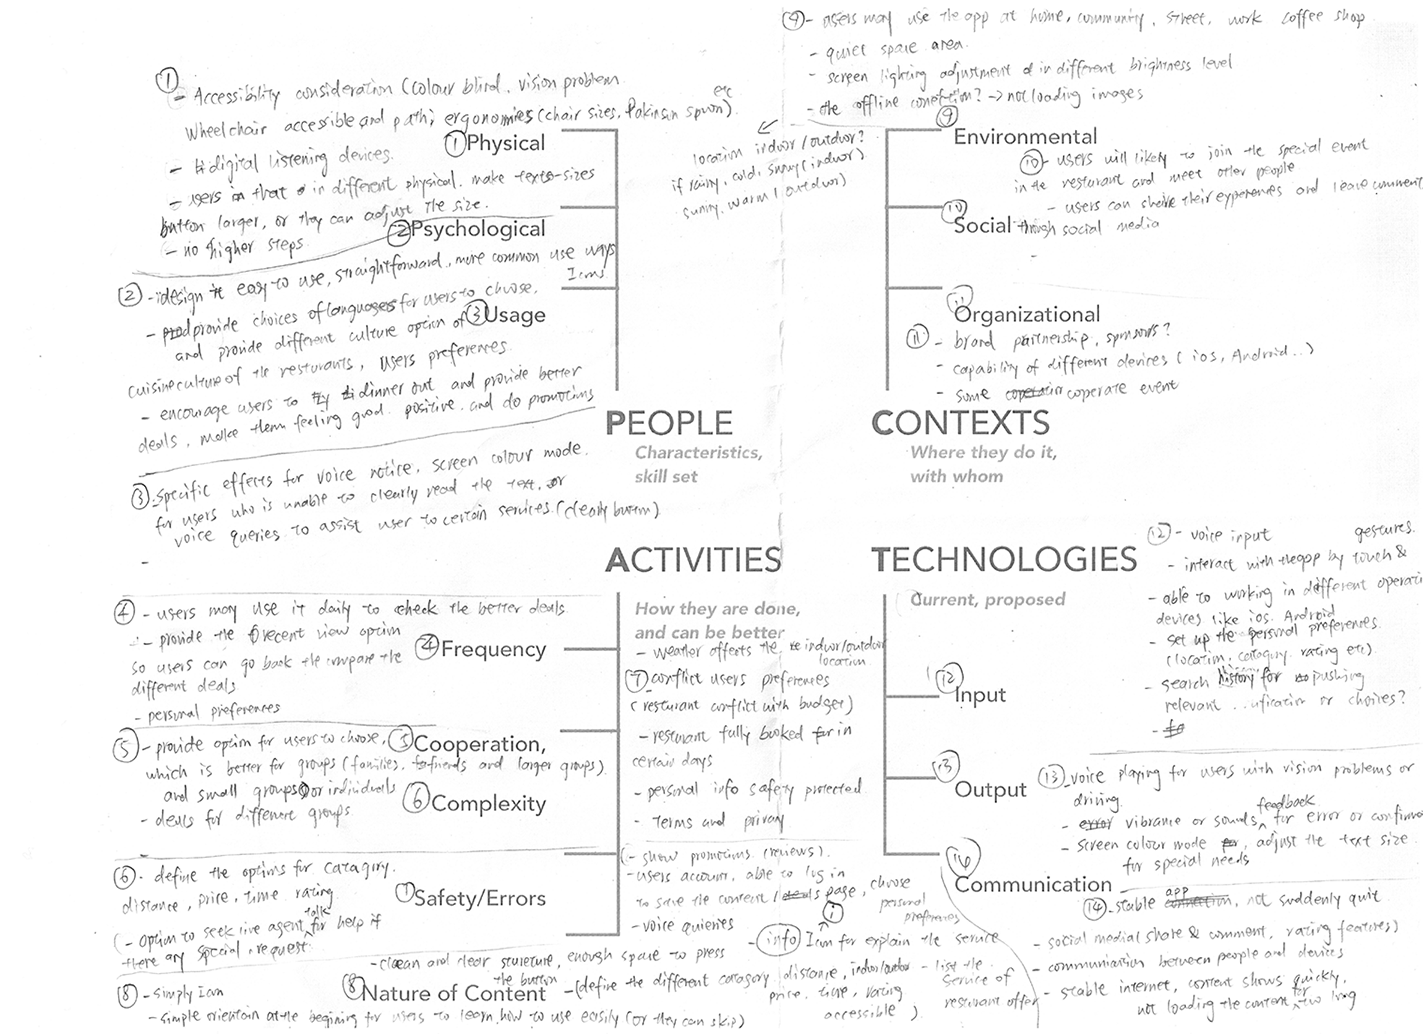 ① - Accessibility consideration (Colour blind, vision problem
Wheelchair accessible and path; ergonomics (chair sizes, Pakinsin spoon). etc
- digital listening devices.
- users in that in different physical. make texts-sizes
button larger, or they can adjust the size.
- no higher steps.
① Physical
② Psychological
③ Usage
② - design easy to use, straightforward, more common use ways
Icons
- provide choices of languages for users to choose.
and provide different culture option of
cuisine culture of the resturants, users preferences.
- encourage users to try dinner out and provide better
deals, make them feeling good. positive. and do promotions
③ - Specific effects for voice notice, screen colour mode.
for users who is unable to clearly read the text, or
voice queries to assist user to certain services. (clearly button)
-
PEOPLE
Characteristics,
skill set
⑨ - users may use the app at home, community, street, work coffee shop
- quiet space area.
- screen lighting adjustment in different brightness level
- the offline conection? -> not loading images
location indoor/outdoor?
if rainy, cold, sunny (indoor)
sunny, warm (outdoor)
⑨ Environmental
⑩ - users will likely to join the special event
in the resturant and meet other people
- users can share their experiences and leave comment
⑩ Social through social media
-
⑪ Organizational
⑪ - brand partnership, sponsors?
- capability of different devices (ios, Android..)
- some coperate event
CONTEXTS
Where they do it,
with whom
ACTIVITIES
How they are done,
and can be better
④ - users may use it daily to check the better deals.
- provide the recent view option
so users can go back the compare the
different deals
- personal preferences
④ Frequency
⑤ - provide option for users to choose,
which is better for groups (families, friends and larger groups)
and small groups or individuals
- deals for different groups.
-
⑤ Cooperation,
⑥ Complexity
⑥ - define the options for catagory.
distance, price, time rating
(- Option to seek live agent talk for help if
there any special request.
⑦ Safety/Errors
- weather affects the indoor/outdoor
location
⑦ - conflict users preferences
(resturant conflict with budget)
- resturant fully booked in
certain days
- personal info safety protected
- Terms and privacy
(- show promotions. (reviews).
- users account, able to log in
to save the content / page, choose
personal
preferences
- voice quieries
- info Icon for explain the service
i
- list the
service of
resturant offer
- clean and clear structure, enough space to press
the button
⑧ Nature of Content
- (define the different catagory. distance, indoor/outdoor
price, time, rating
accessible)
⑧ - Simply Icon
- simple orientain at the begining for users to learn how to use easily (or they can skip)
TECHNOLOGIES
Current, proposed
⑫ - voice input
gestures.
- interact with the app by touch &
- able to working in different operati
devices like ios. Android
- set up the personal preferences.
(location, catagory. rating etc)
- search history for pushing
relevant ..ufication or choices?
-
⑫ Input
⑬ Output
⑬ - voice playing for users with vision problems or
driving.
- vibrance or sounds feedback for error or confirma
- screen colour mode, adjust the text size
for special needs
⑭ Communication
⑭ - stable app, not suddenly quit.
- social medial share & comment, rating features)
- communication between people and devices
- stable internet, content shows quickly,
not loading the content for too long